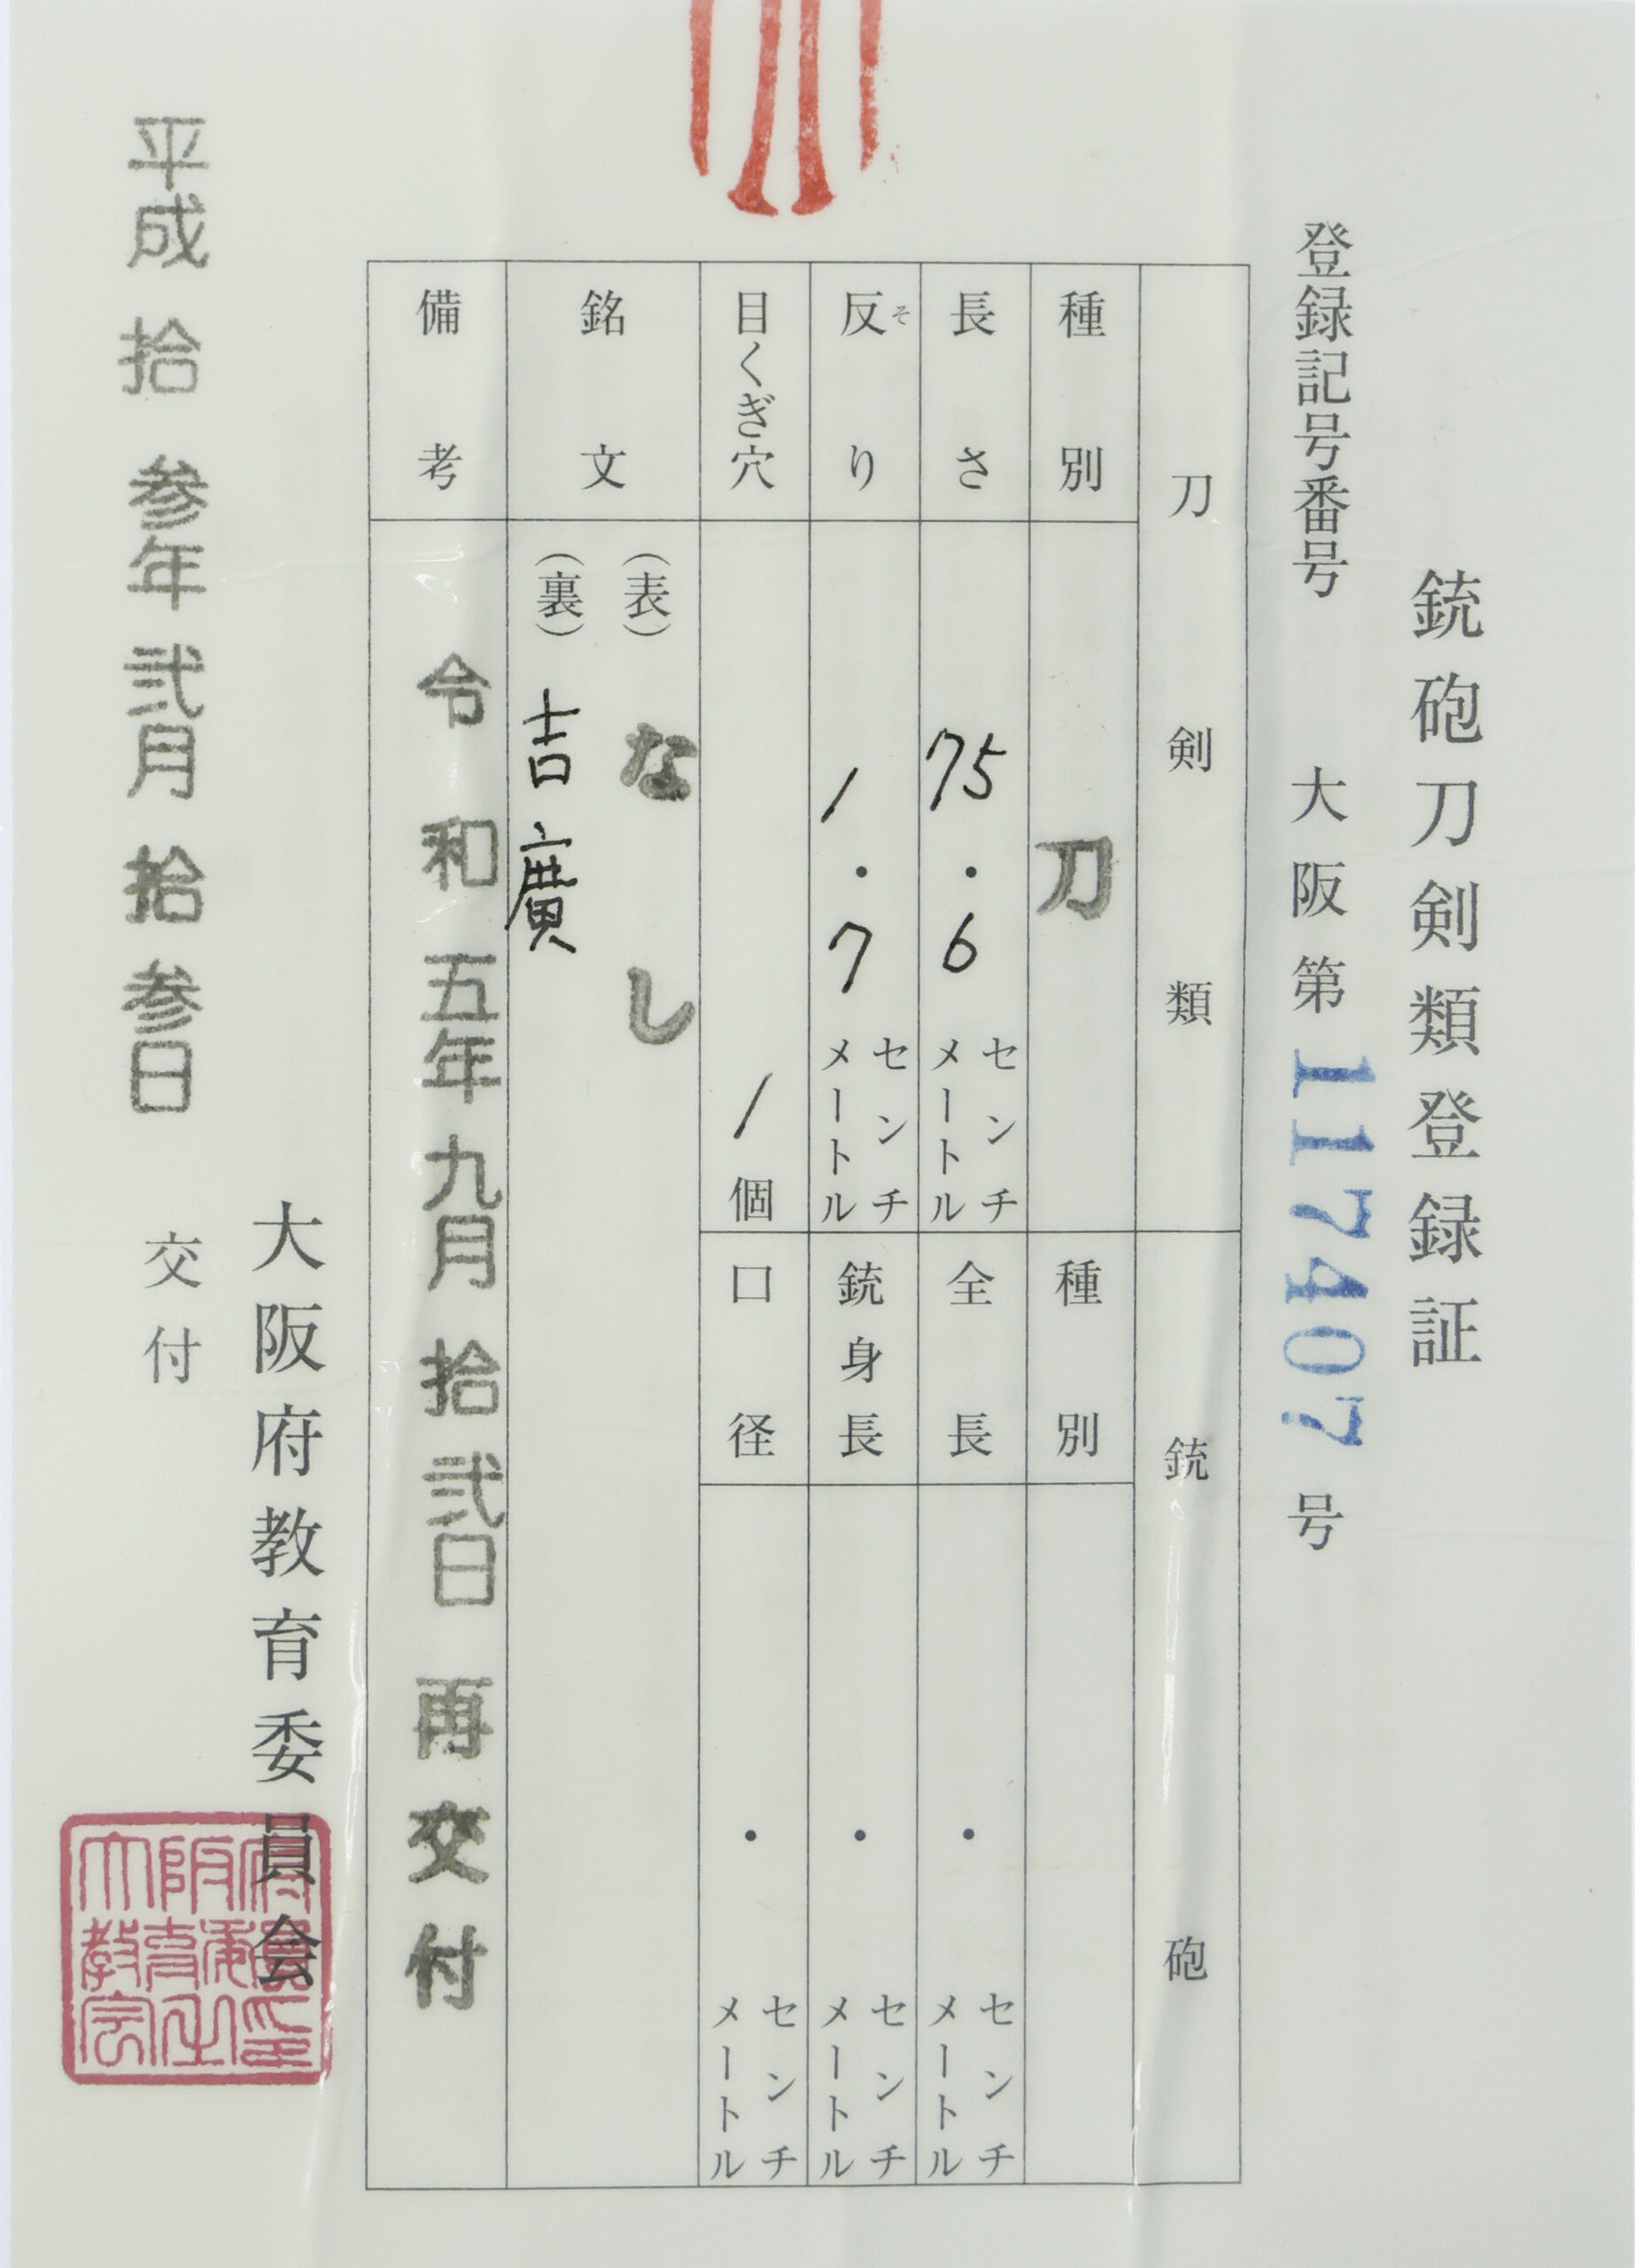 銃砲刀剣類登録証
登録記号番号 大阪第117407号
刀剣類
銃砲
種別 刀
種別
長さ 75.6 センチメートル
全長 ・ センチメートル
反り そ 1.7 センチメートル
銃身長 ・ センチメートル
目くぎ穴 1個
口径 ・ センチメートル
銘文 (表) なし
(裏) 吉廣
備考 令和五年九月拾弐日再交付
大阪府教育委員会
平成拾参年弐月拾参日 交付